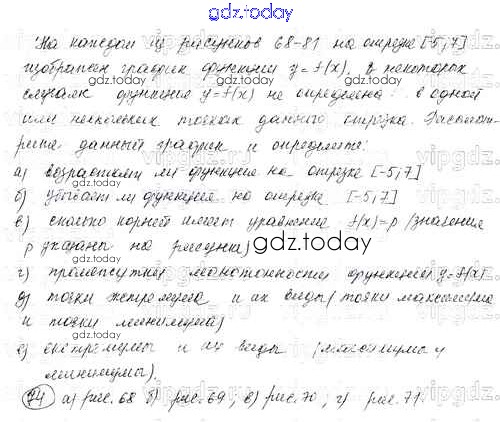 gdz.today
На каждом из рисунков 68-81 на отрезке [-5;7]
изображен график функции y=f(x), в некоторых
случаях функция y=f(x) не определена в одной
или нескольких точках данного отрезка. Рассмот-
рите данный график и определите:
а) возрастает ли функция на отрезке [-5;7]
б) убывает ли функция на отрезке [-5;7]
в) сколько корней имеет уравнение f(x)=p /значения
p указаны на рисунке)
gdz.today
г) промежутки монотонности функции y=f(x)
д) точки экстремума и их виды (точки максимума
и точки минимума)
е) экстремумы и их виды (максимумы и
минимумы).
74 а) рис. 68 б) рис. 69, в) рис. 70, г) рис. 71.
gdz.today